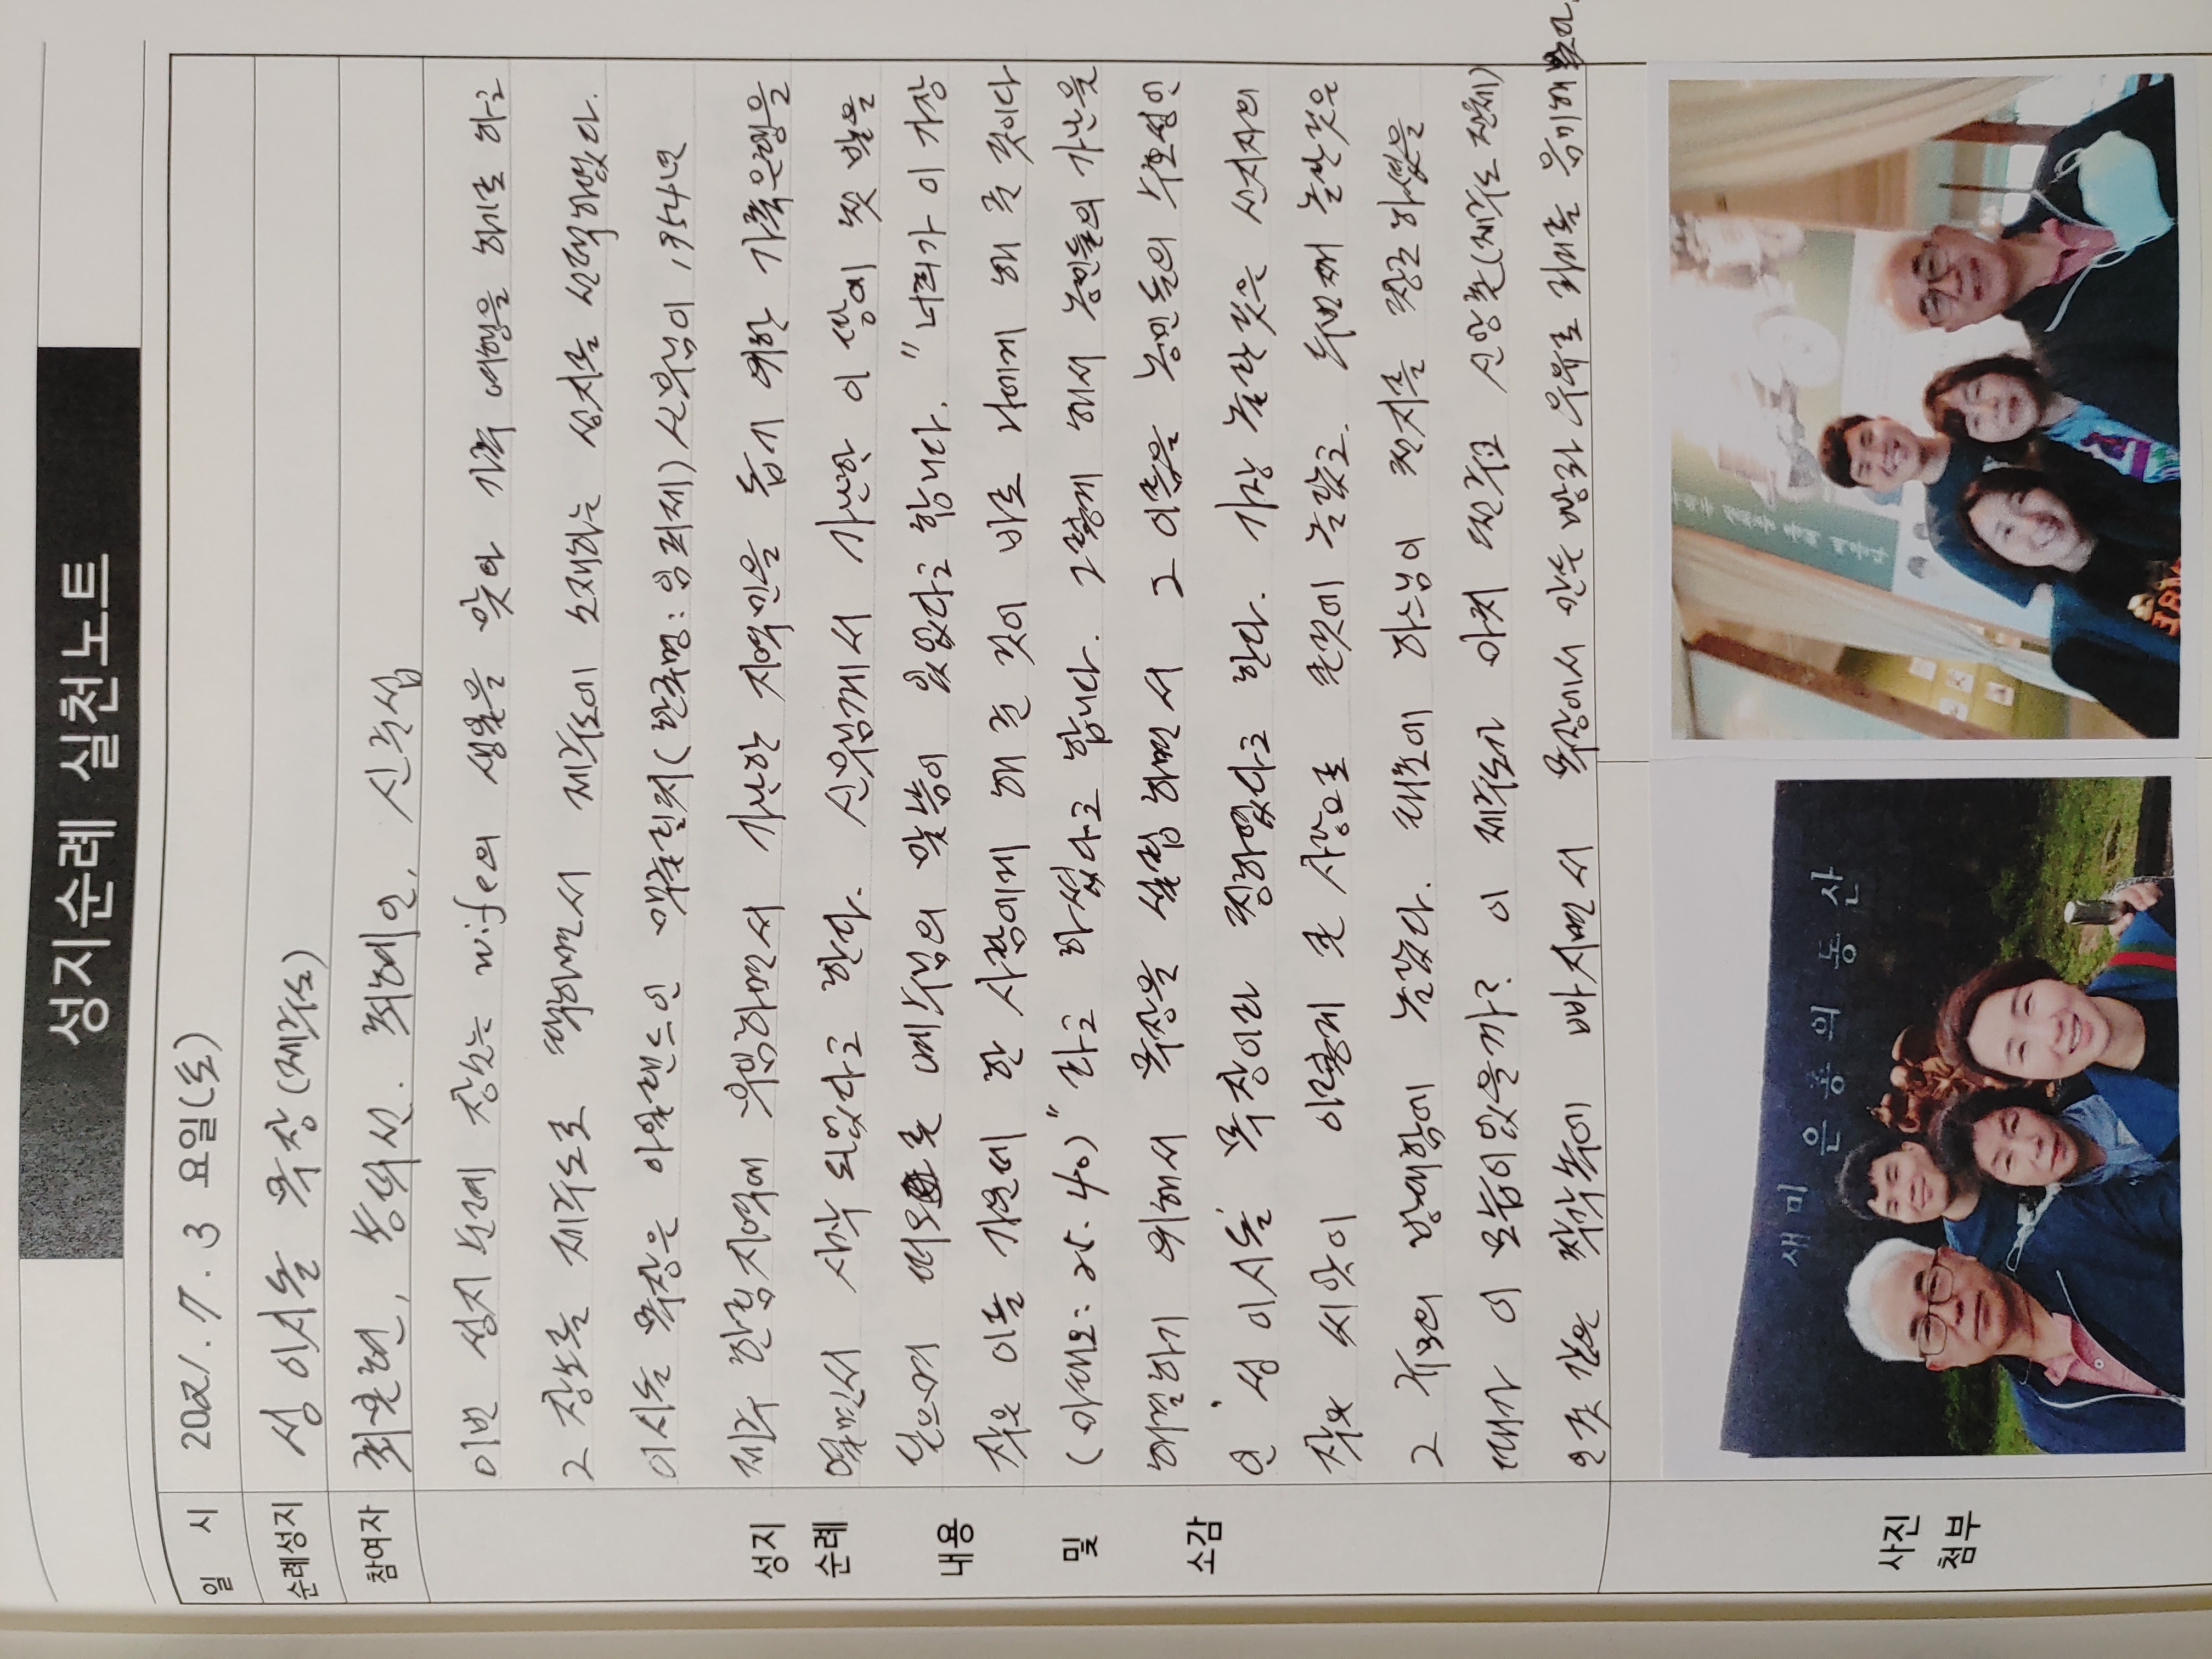 성지순례 실천노트
일 시 2021. 7. 3 요일(토)
순례성지 성 이시돌 목장(제주도)
참여자 신주섭
성지
순례
내용
및
소감
이번 성지순례 장소는 wife의 생일을 맞아 가족 여행을 하기로 하고
그 장소를 제주도로 택하면서 제주도에 소재하는 성지를 선택하였다.
이시돌 목장은 아일랜드인 맥그린치(한국명: 임피제)신부님이 1954년
제주 한림지역에 부임하면서 가난한 지역민을 돕기 위한 가축은행을
열면서 시작 되었다고 한다. 신부님께서 가난한 이 땅에 첫 발을
예수님의 말씀이 있었다고 합니다. "너희가 이 가장
작은 이들 가운데 한 사람에게 해 준 것이 바로 나에게 해 준 것이다
(마태오: 25. 40)" 라고 하셨다고 합니다. 그렇게 해서 농민들의 가난을
해결하기 위해서 목장을 설립하면서 그 이름을 농민들의 수호성인
인 '성 이시돌' 목장이라 정하였다고 한다. 가장 놀란 것은 선지자의
작은 씨앗이 이렇게 큰 사랑으로 큰것에 놀랐고. 두번째 놀란 것은
그 규모의 방대함에 놀랐다. 태초에 하느님이 천지를 창조하셨을
때가 이 모습이었을까? 이 제주도가 아껴 떤주고 신앙촌(제주도 전체)
인것 같은 착각속에 빠지면서 목장에서 만든 빵과 우유로 차례를 음미해
사진
첨부
새미
은총의 동산